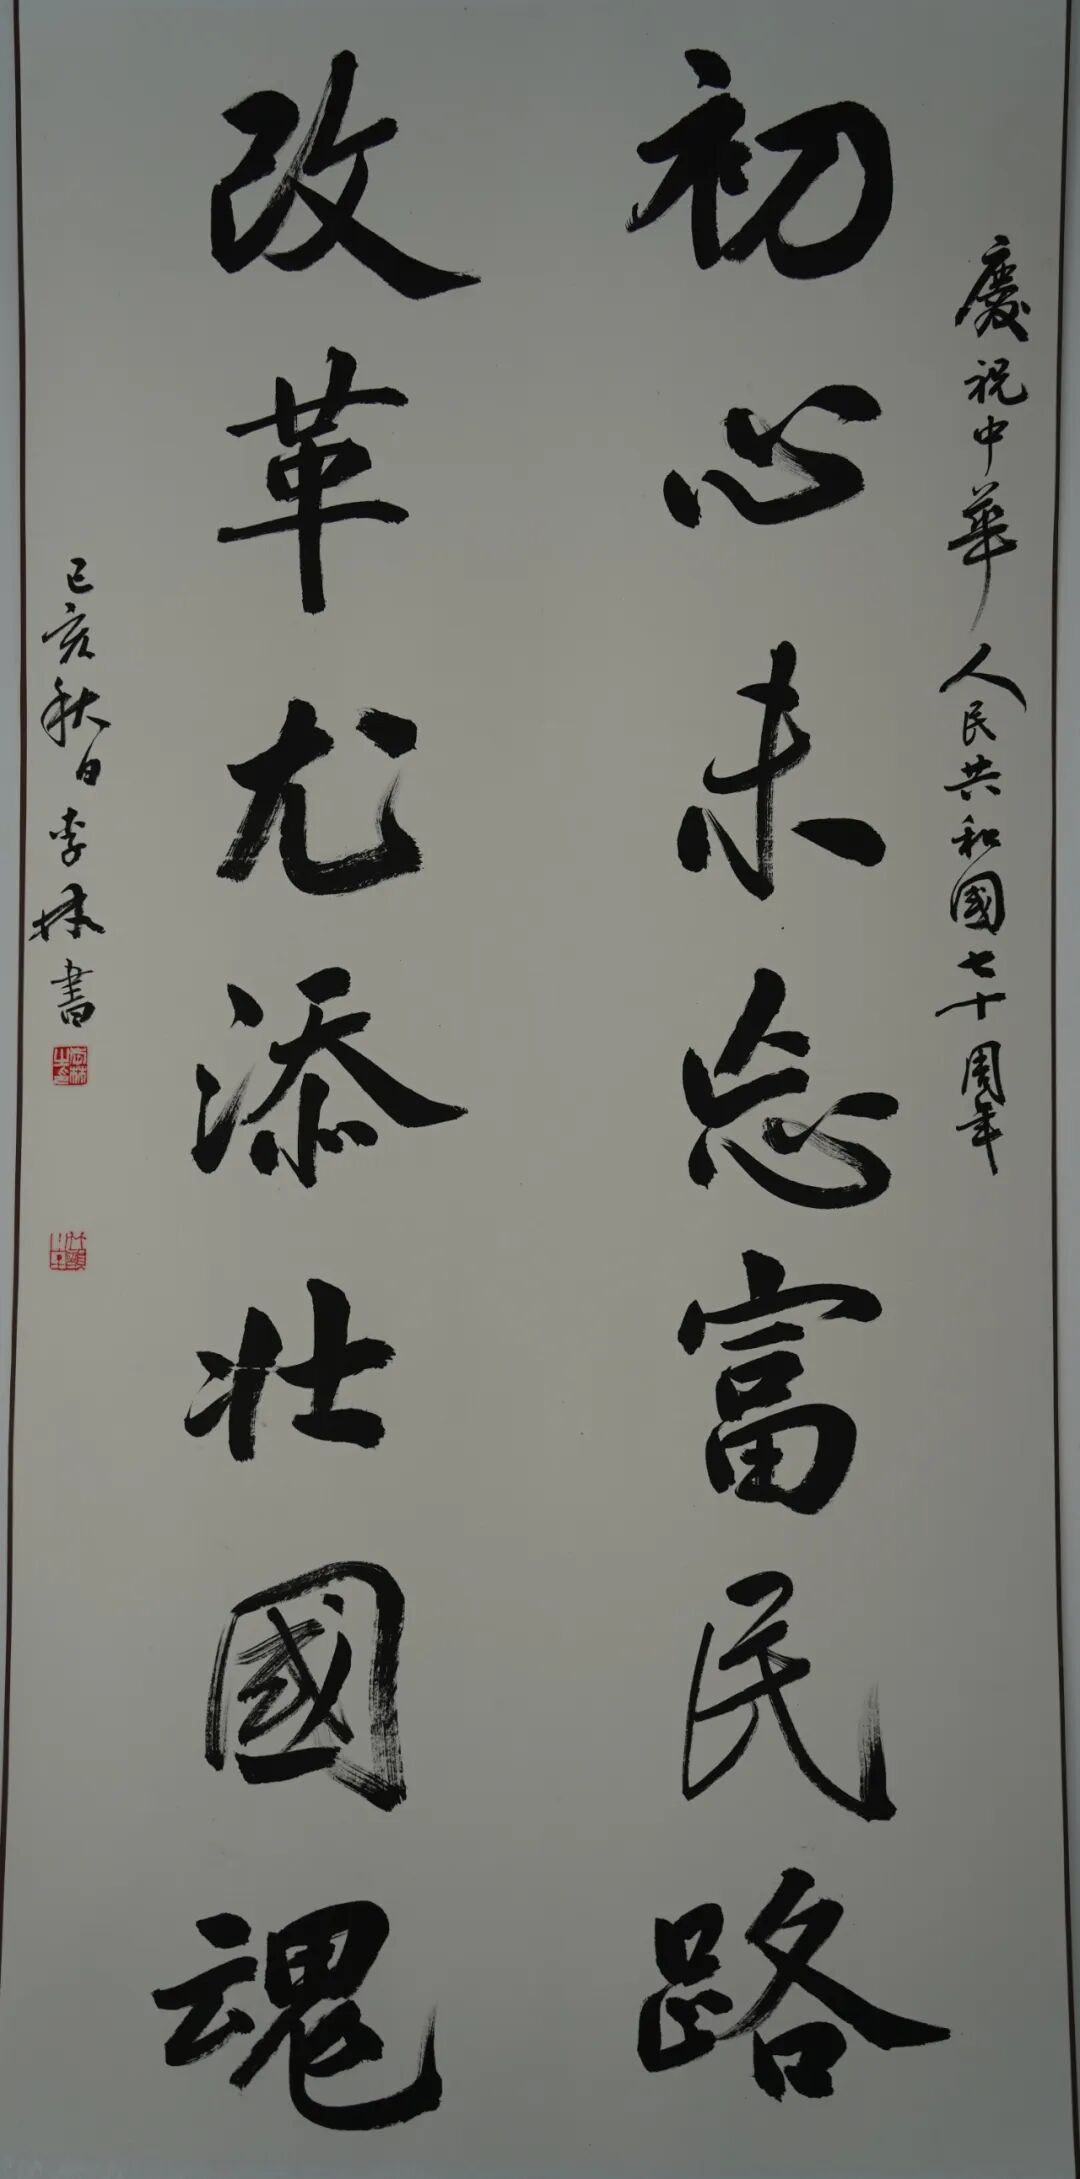 慶祝中華人民共和國七十周年
初心未忘富民路
改革尤添壯國魂
己亥秋日李林書
李林之印